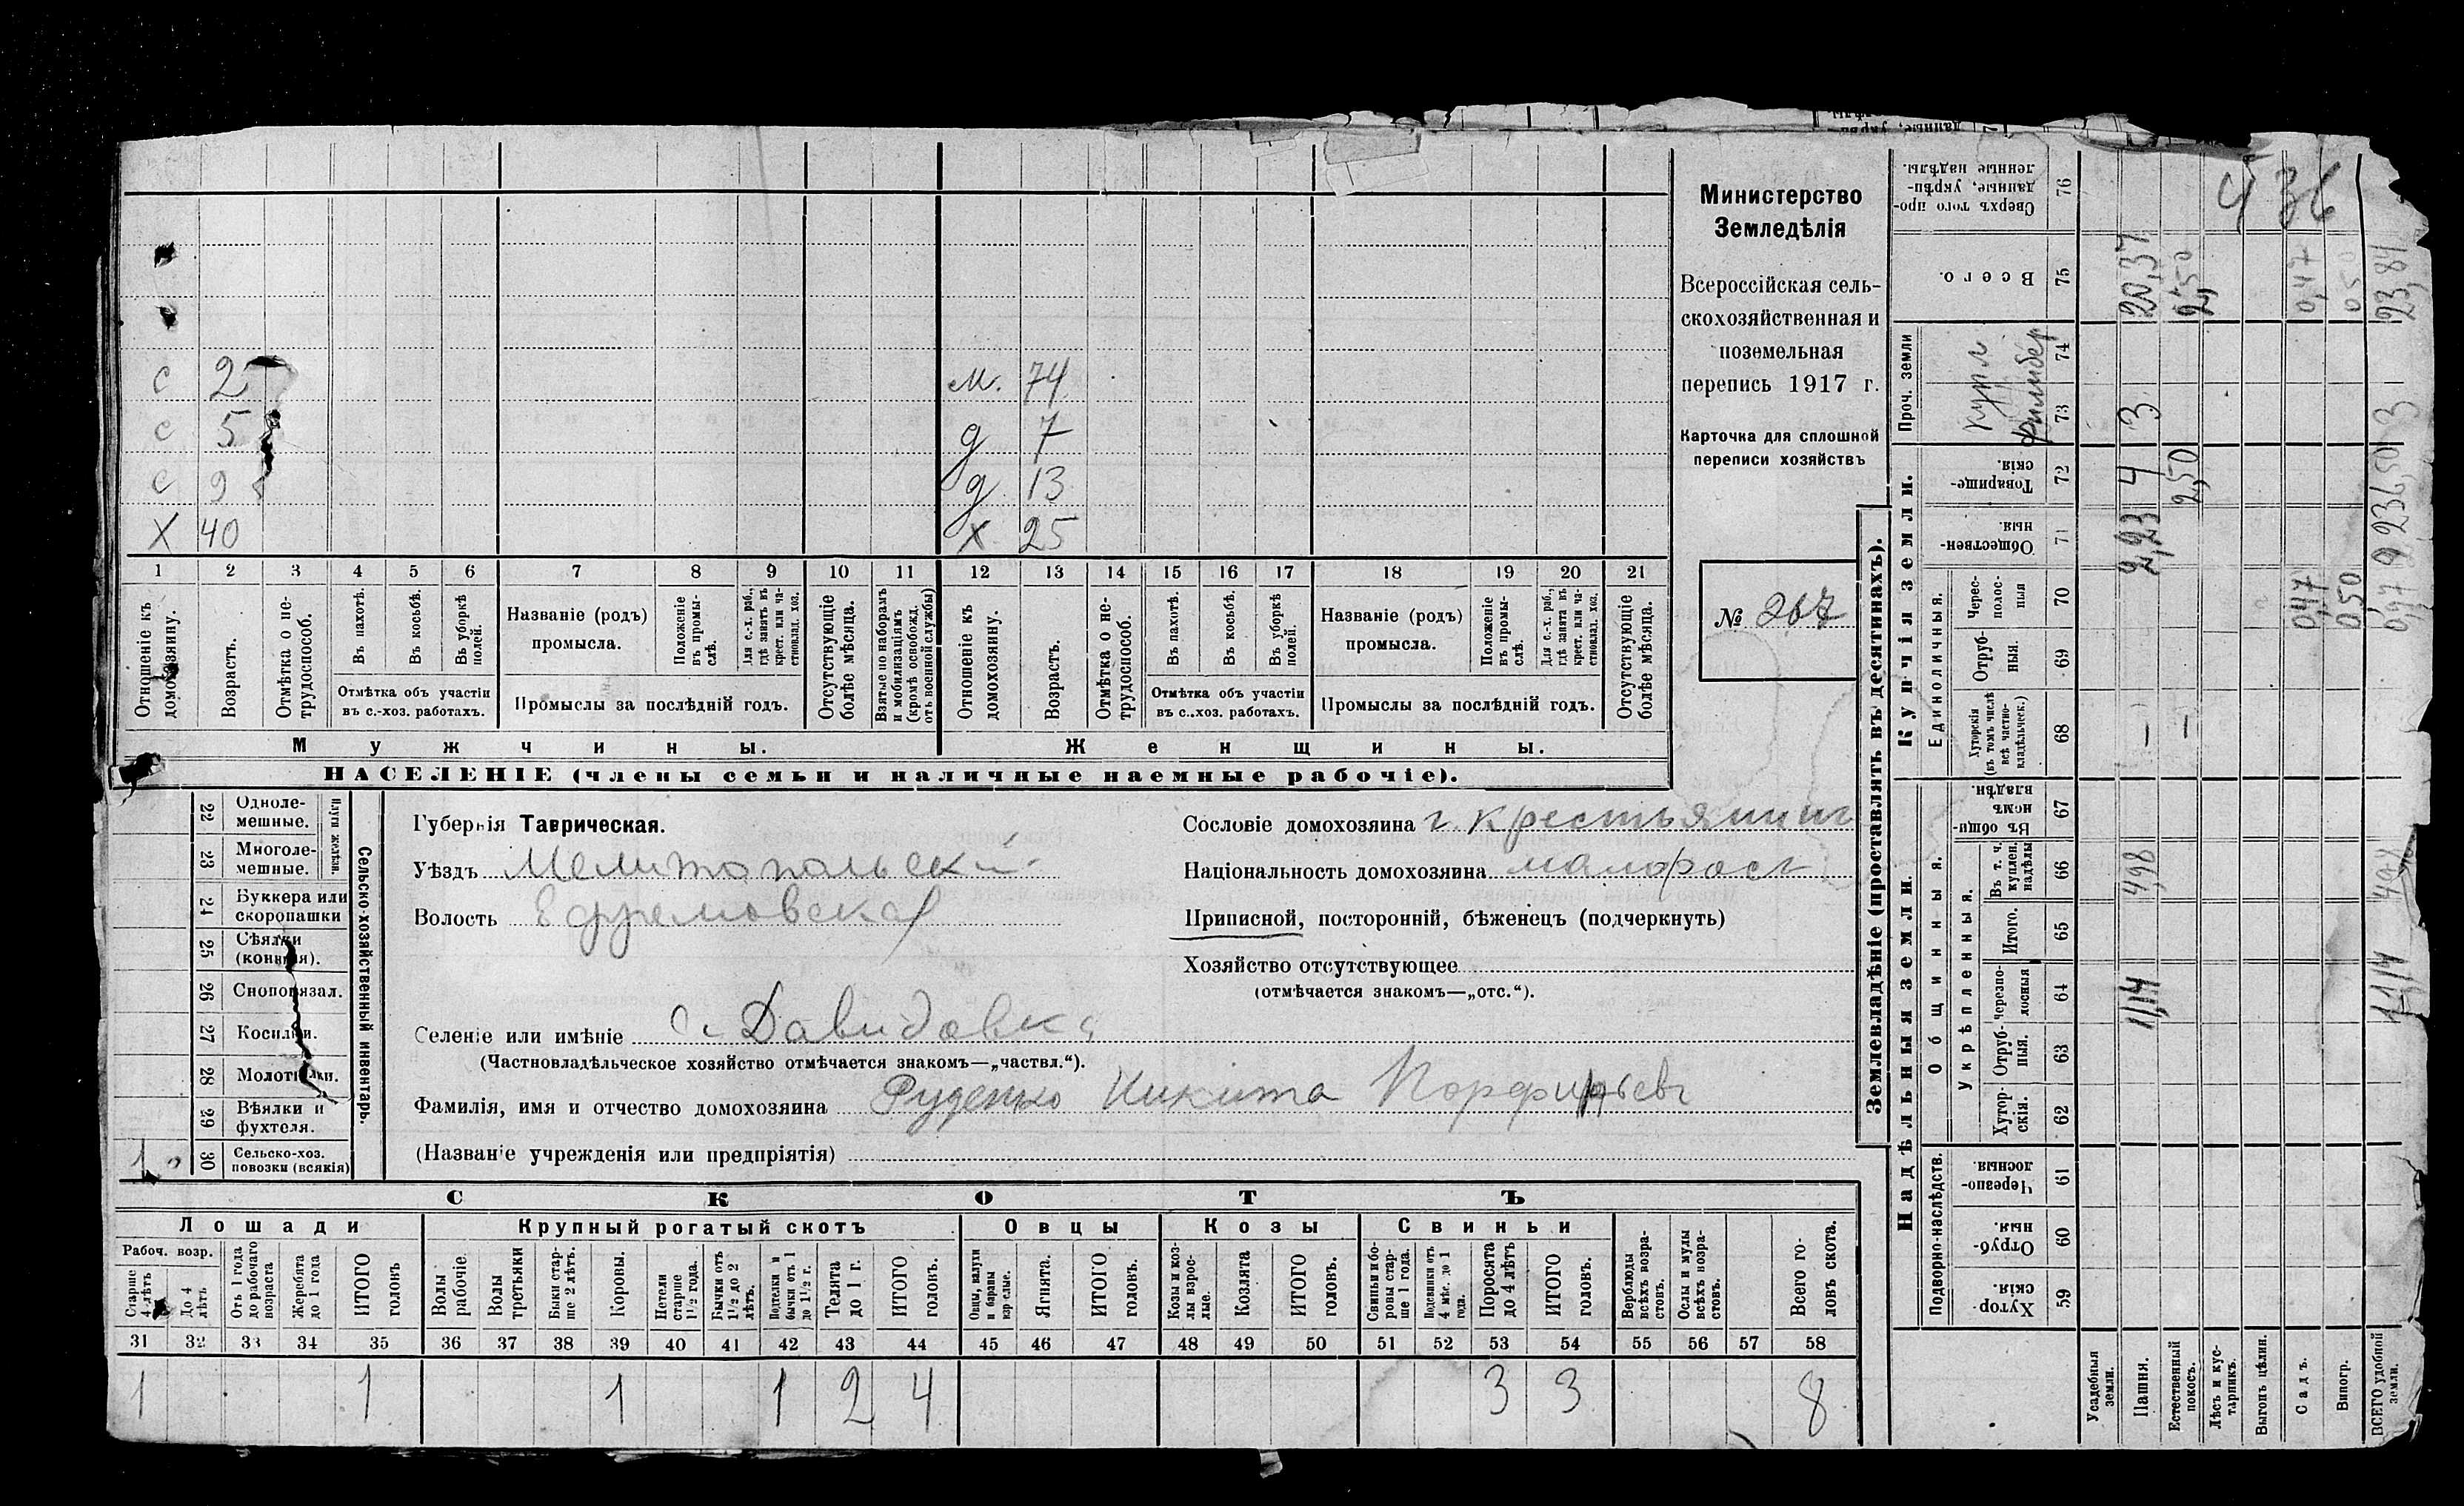 с 2 м. 74
с 5 д 7
с 9 д 13
х 40 х 25
1 2 3 4 5 6 7 8 9 10 11 12 13 14 15 16 17 18 19 20 21
Отношеніе къ домохозяину.
Возрастъ.
Отмѣтка о не-
трудоспособ.
Въ пахотѣ.
Въ косьбѣ.
Въ уборкѣ
полей.
Отмѣтка объ участіи
въ с.-хоз. работахъ.
Названіе (родъ)
промысла.
Положеніе
въ промы-
слѣ.
Для с.-х. раб.,
гдѣ занятъ въ
крест. или ча-
стновлад. хоз.
Промыслы за послѣдній годъ.
Отсутствующіе
болѣе мѣсяца.
Взятые по наборамъ
и мобилизаціямъ
(кромѣ освобожд.
отъ военной службы)
Отношеніе къ
домохозяину.
Возрастъ.
Отмѣтка о не-
трудоспособ.
Въ пахотѣ.
Въ косьбѣ.
Въ уборкѣ
полей.
Отмѣтка объ участіи
въ с.-хоз. работахъ.
Названіе (родъ)
промысла.
Положеніе
въ промы-
слѣ.
Для с.-х. раб.,
гдѣ занята въ
крест. или ча-
стновлад. хоз.
Промыслы за послѣдній годъ.
Отсутствующіе
болѣе мѣсяца.
Мужчины. Женщины.
НАСЕЛЕНІЕ (члены семьи и наличные наемные рабочіе).
Министерство
Земледѣлія
Всероссійская сель-
скохозяйственная и
поземельная
перепись 1917 г.
Карточка для сплошной
переписи хозяйствъ
№ 267
Сельско-хозяйственный инвентарь.
Плуги желѣзн.
22 Одноле-
мешные.
23 Многоле-
мешные.
24 Буккера или
скоропашки
25 Сѣялки
(конныя).
26 Сноповязал.
27 Косилки.
28 Молотилки.
29 Вѣялки и
фухтеля.
1 30 Сельско-хоз.
повозки (всякія)
Губернія Таврическая.
Уѣздъ Мелитопольскій
Волость Ефремовская
Селеніе или имѣніе с. Давидовка
(Частновладѣльческое хозяйство отмѣчается знакомъ—„частвл.“).
Фамилія, имя и отчество домохозяина Руденко Никита Порфирьевъ
(Названіе учрежденія или предпріятія)
Сословіе домохозяина г. крестьянинъ
Національность домохозяина малоросъ
Приписной, посторонній, бѣженецъ (подчеркнуть)
Хозяйство отсутствующее
(отмѣчается знакомъ—„отс.“).
СКОТЪ
Лошади Крупный рогатый скотъ Овцы Козы Свиньи
Рабоч. возр.
Старше
4 лѣтъ
До 4
лѣтъ
Отъ 1 года
до рабочаго
возраста
Жеребята
до 1 года
ИТОГО
головъ
Волы
рабочіе.
Волы
третьяки
Быки стар-
ше 2 лѣтъ.
Коровы.
Нетели
старше
1½ года.
Бычки отъ
1½ до 2
лѣтъ.
Подтелки и
бычки отъ 1
до 1½ г.
Телята
до 1 г.
ИТОГО
головъ.
Овцы, валухи
и бараны
взрослые.
Ягнята.
ИТОГО
головъ.
Козы и коз-
лы взрос-
лые.
Козлята
ИТОГО
головъ.
Свиньи и бо-
ровы стар-
ше 1 года.
Подсвинки отъ
4 мѣс. до 1
года.
Поросята
до 4 лѣтъ
ИТОГО
головъ.
Верблюды
всѣхъ возра-
стовъ.
Ослы и мулы
всѣхъ возра-
стовъ.
Всего го-
ловъ скота.
31 32 33 34 35 36 37 38 39 40 41 42 43 44 45 46 47 48 49 50 51 52 53 54 55 56 57 58
1 1 1 1 2 4 3 3 8
Землевладѣніе (проставлять въ десятинахъ).
Надѣльныя земли.
Купчія земли.
Проч. земли
Подворно-наслѣдств.
Общинныя.
Укрѣпленныя.
Единоличныя.
Хутор-
скія. 59
Отруб-
ныя. 60
Черезпо-
лосныя. 61
Хутор-
скія. 62
Отруб-
ныя. 63
Черезпо-
лосныя 64
Итого. 65
Въ т. ч.
куплен.
надѣлы 66
Въ общи-
немъ
владѣн. 67
Хуторскія
(въ томъ числѣ
всѣ частно-
владѣльческ.) 68
Отруб-
ныя 69
Черес-
полос-
ныя 70
Обществен-
ныя. 71
Товарище-
скія. 72
73 74
Всего. 75
Сверхъ того про-
данные, укрѣп-
ленные надѣлы. 76
Усадебныя
земли.
Пашня. 11,14 4,98 — 2,23 4 3 20,37
Естественный
покосъ. — 2,50 2,50
Лѣсъ и кус-
тарникъ.
Выгонъ цѣлин.
Садъ. 0,47 0,47
Виногр. 0,50 0,50
ВСЕГО удобной
земли. 11,14 4,98 0,97 6,50 3 23,84
436